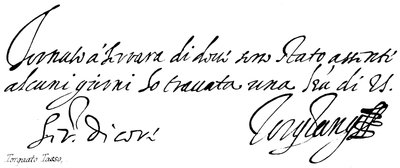 Tornato à Ferrara di dove sono stato assente
alcuni giorni ho trovata una sua di
di core
Torquato Tasso.